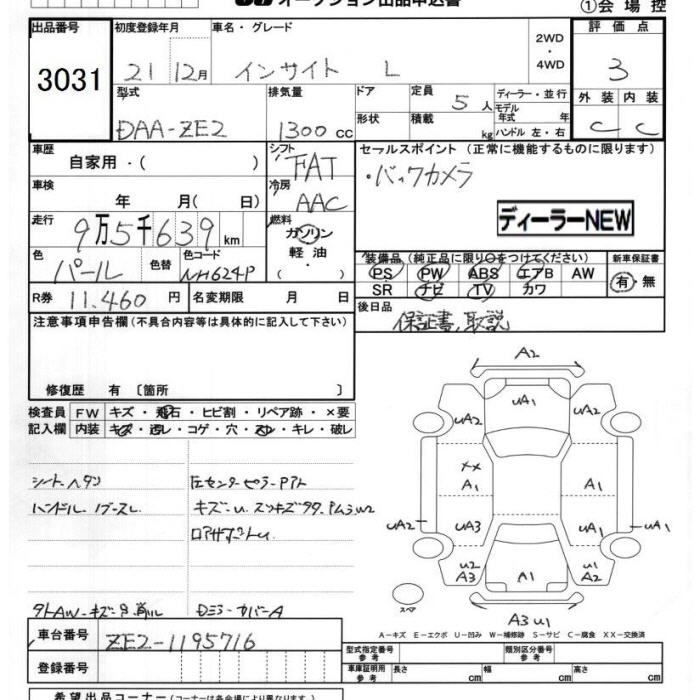 オークション出品申込書
①会場控
出品番号 初度登録年月 車名・グレード 2WD・4WD 評価点
3031 21 12月 インサイト L 3
型式 排気量 ドア 定員 ディーラー・並行 外装 内装
DAA-ZE2 1300cc 5人 モデル年式 年 C C
形状 積載 kg ハンドル 左・右
車歴 自家用・( ) シフト FAT セールスポイント(正常に機能するものに限ります)
車検 年 月( 日) 冷房 AAC ・バックカメラ
走行 9万5千639km 燃料 ガソリン・軽油・( ) ディーラーNEW
色 パール 色替 色コード NH624P 装備品(純正品に限り○をつけてください) 新車保証書
PS PW ABS エアB AW 有・無
SR ナビ TV カワ
R券 11.460円 名変期限 月 日 後日品
保証書、取説
注意事項申告欄(不具合内容等は具体的に記入して下さい)
修復歴 有 〔箇所 〕
検査員記入欄 FW キズ・飛石・ヒビ割・リペア跡・×要
内装 キズ・汚レ・コゲ・穴・スレ・キレ・破レ
シートヘタリ 左センターピラーPアト
キズ
A2
UA1
UA2 UA2
XX
A1 A1
UA2 UA3 UA1 UA1
U2 A3 A1 U1 A2
スペア
A3 U1
A-キズ E-エクボ U-凹み W-補修跡 S-サビ C-腐食 XX-交換済
車台番号 ZE2-1195716
登録番号
型式指定番号 参考 類別区分番号 参考
車庫証明用 参考 長さ cm 幅 cm 高さ cm
希望出品コーナー(コーナーは各会場により異なります。)